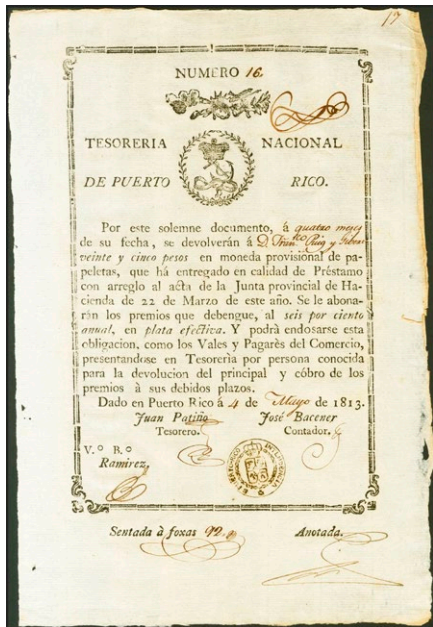 17
NUMERO 16.
TESORERIA NACIONAL
DE PUERTO RICO.
Por este solemne documento, á quatro meses
de su fecha, se devolverán á D. Fran.co Puig y
veinte y cinco pesos en moneda provisional de pa-
peletas, que há entregado en calidad de Préstamo
con arreglo al acta de la Junta provincial de Ha-
cienda de 22 de Marzo de este año. Se le abona-
rán los premios que debengue, al seis por ciento
anual, en plata efectiva. Y podrá endosarse esta
obligacion, como los Vales y Pagarès del Comercio,
presentandose en Tesorería por persona conocida
para la devolucion del principal y cóbro de los
premios à sus debidos plazos.
Dado en Puerto Rico á 4 de Mayo de 1813.
Juan Patiño José Bacener
Tesorero. Contador.
V.º B.º
Ramirez.
Sentada à foxas 92. Anotada.